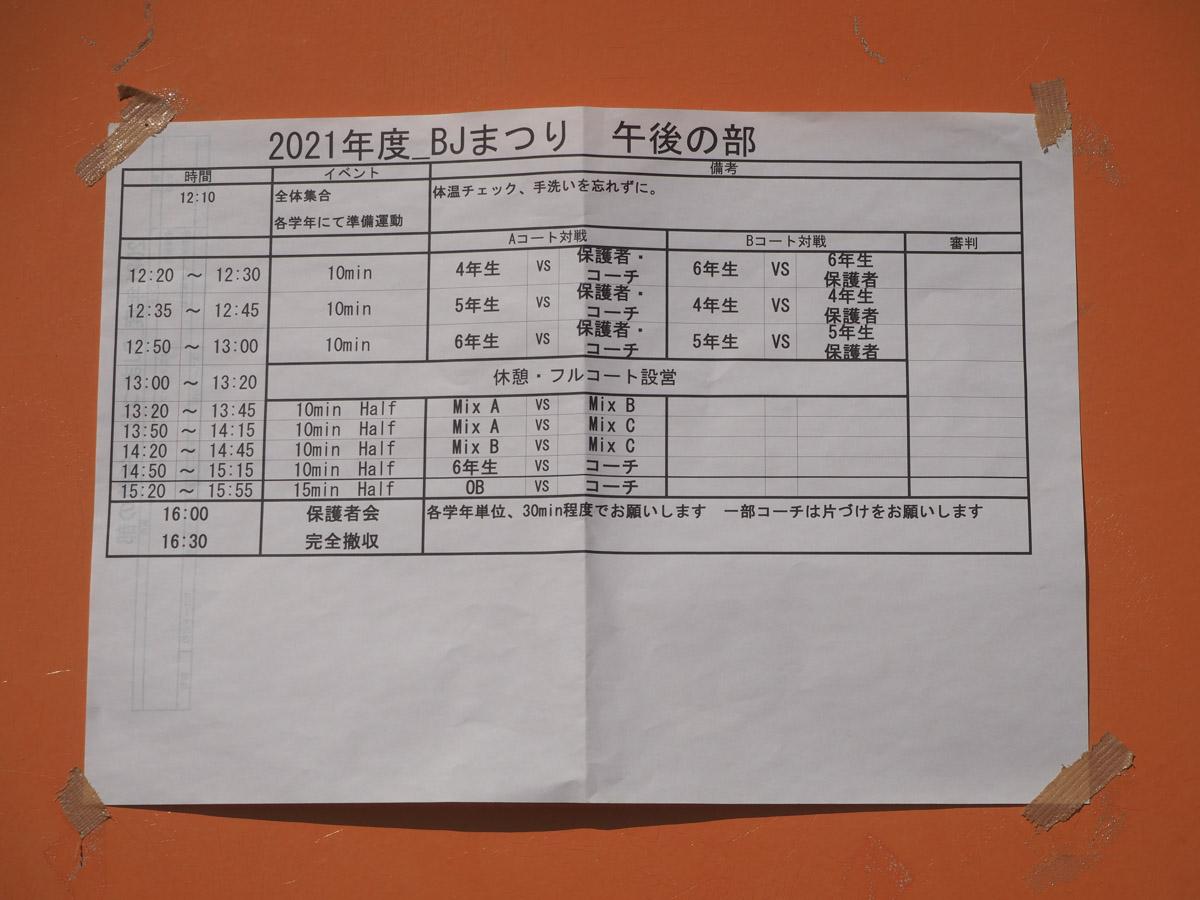 2021年度_BJまつり　午後の部
時間 イベント 備考
12:10 全体集合 体温チェック、手洗いを忘れずに。
各学年にて準備運動
Aコート対戦 Bコート対戦 審判
12:20 ～ 12:30 10min 4年生 VS 保護者・コーチ 6年生 VS 6年生保護者
12:35 ～ 12:45 10min 5年生 VS 保護者・コーチ 4年生 VS 4年生保護者
12:50 ～ 13:00 10min 6年生 VS 保護者・コーチ 5年生 VS 5年生保護者
13:00 ～ 13:20 休憩・フルコート設営
13:20 ～ 13:45 10min Half Mix A VS Mix B
13:50 ～ 14:15 10min Half Mix A VS Mix C
14:20 ～ 14:45 10min Half Mix B VS Mix C
14:50 ～ 15:15 10min Half 6年生 VS コーチ
15:20 ～ 15:55 15min Half OB VS コーチ
16:00 保護者会 各学年単位、30min程度でお願いします　一部コーチは片づけをお願いします
16:30 完全撤収